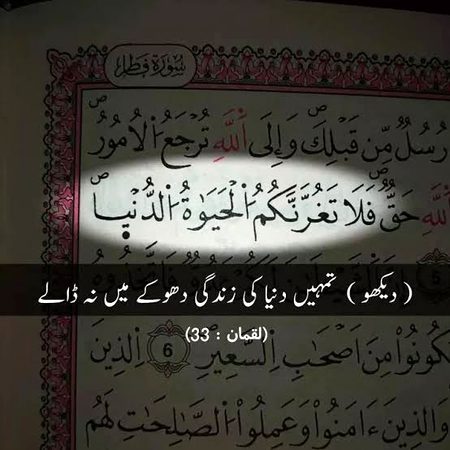 سُورَةُ فَطِرٍ
رُسُلٌ مِّن قَبْلِكَ وَإِلَى اللَّهِ تُرْجَعُ الْأُمُورُ
اللَّهِ حَقٌّ فَلَا تَغُرَّنَّكُمُ الْحَيَوٰةُ الدُّنْيَا
( دیکھو ) تمہیں دنیا کی زندگی دھوکے میں نہ ڈالے
(لقمان : 33)
يَكُونُوا مِنْ أَصْحَٰبِ السَّعِيرِ 6 الَّذِينَ
وَالَّذِينَ ءَامَنُوا وَعَمِلُوا الصَّٰلِحَٰتِ لَهُم